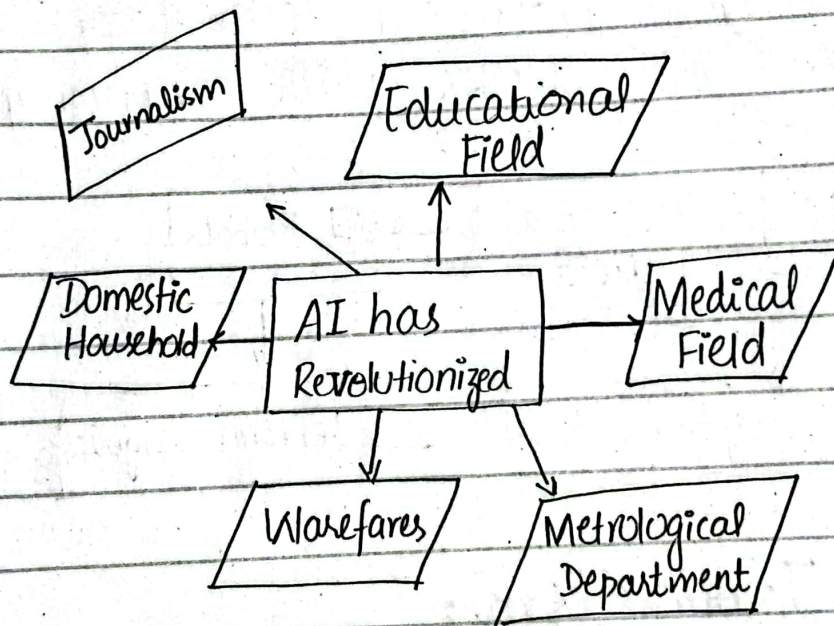 Journalism
Educational
Field
Domestic
Household
AI has
Revolutionized
Medical
Field
Warefares
Metrological
Department